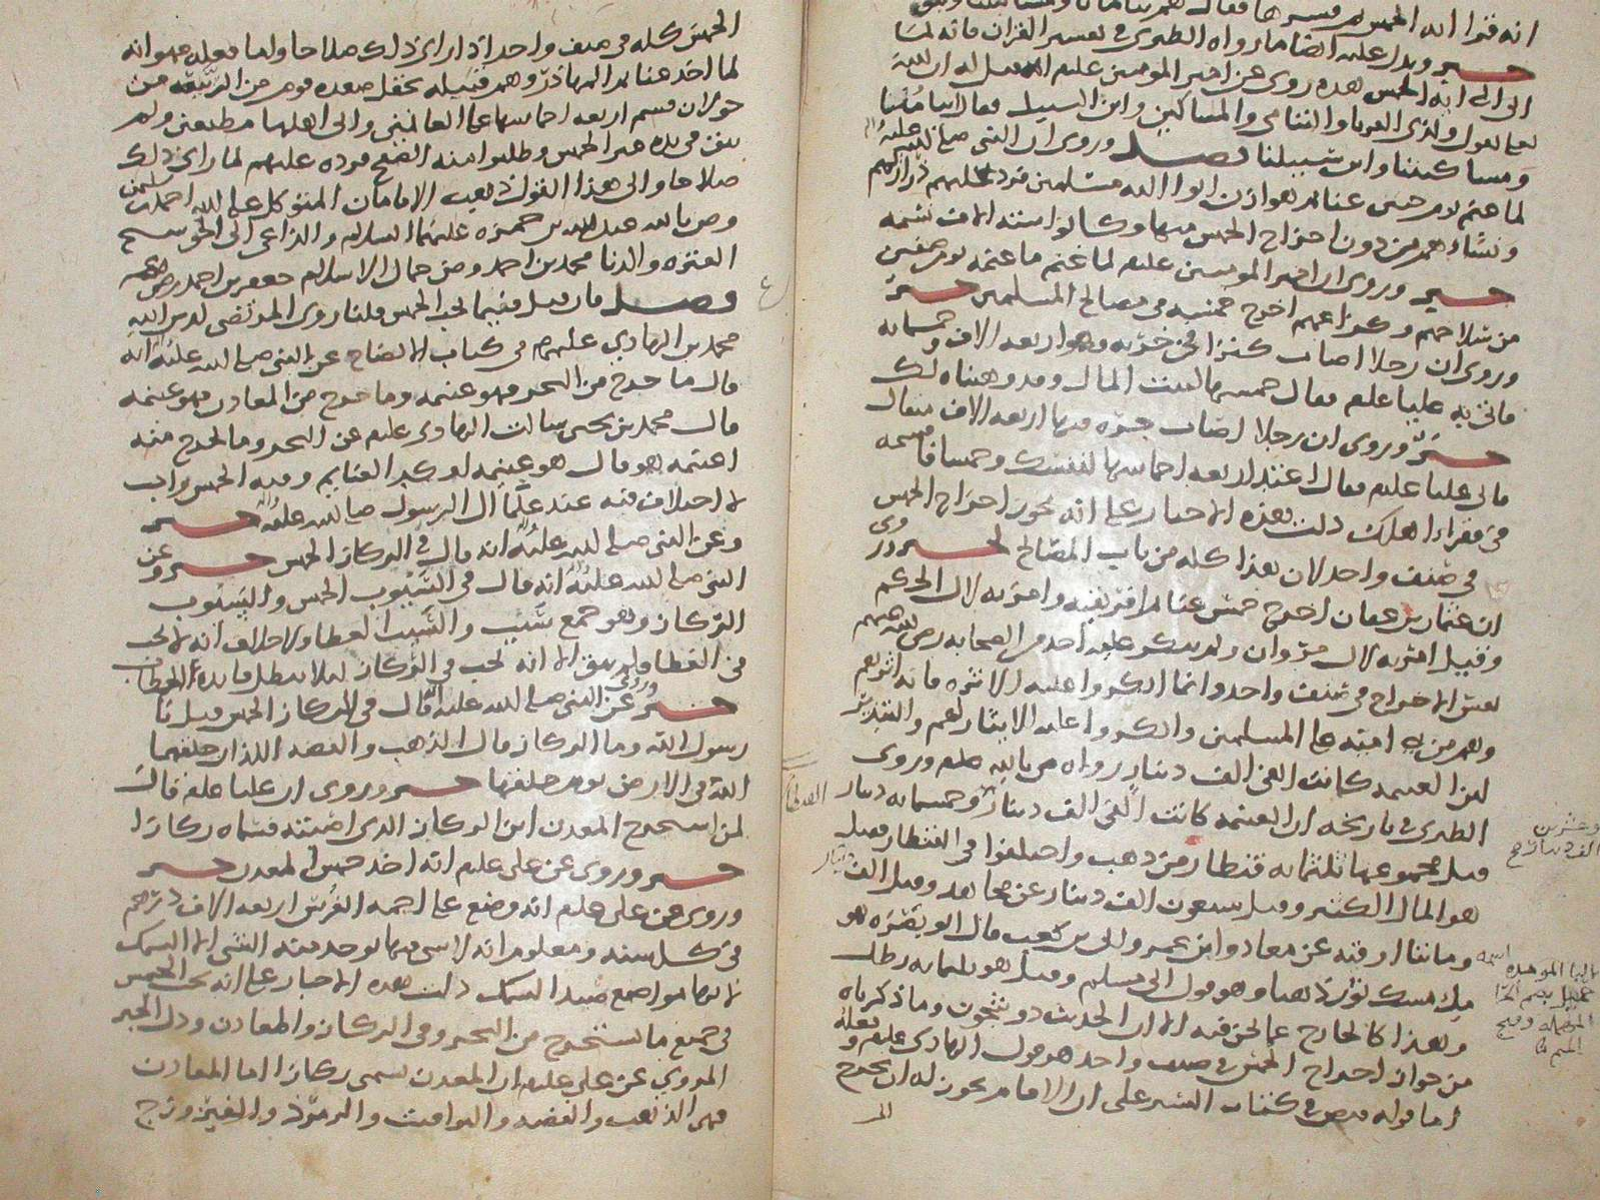 انه قرا ايه الخمس
خبر ويدل عليه ايضا ما رواه الطبري في تفسير القران فانه لما
الى ايه الخمس هذه روى عن امير المومنين عليلم انه قيل له ان الله
تعالى يقول ولذي القربا واليتامى والمساكين وابن السبيل فقال ايتامنا
ومساكيننا وابن سبيلنا فصل وروي ان النبي صلى الله عليه
لما غنم يوم حنين غنايم هوازن اتوا اليه مسلمين فرد عليهم ذراريهم
ونساءهم من دون اخراج الخمس منها وكانوا ستة الاف نسمه
خبر وروي ان امير المومنين عليلم لما غنم ما غنمه يوم صفين
من سلاحهم وكراعهم اخرج خمسه في مصالح المسلمين خبر
وروي ان رجلا اصاب كنزا في خربه وهو اربعه الاف وخمسمايه
فاتى به عليا عليلم فقال خمسها لبيت المال وقد وهبناه لك
خبر وروي ان رجلا اصاب جره فيها اربعه الاف مثقال
فاتى عليا عليلم فقال اعتد اربعه اخماسها لنفسك وخمسا فاقسمه
في فقراء اهلك دلت هذه الاخبار على انه يجوز اخراج الخمس
في صنف واحد لان هذا كله من باب المصالح خبر وروي
ان عثمان بن عفان اخرج خمس غنايم افريقيه وامر به لال الحكم
وقيل امر به لال مروان ولم ينكر عليه احد من الصحابه رضي الله عنهم
نفس الاخراج في صنف واحد وانما انكروا عليه الاثره فانه اثرهم
وهم من بني اميه على المسلمين وانكروا عليه الايثار لهم والتبذير
لان الغنيمه كانت الفي الف دينار رواه من يا بيه عليلم وروى
الطبري في تاريخه ان الغنيمه كانت الفي الف دينار وخمسمايه دينار
قيل مجموعها ثلثمايه قنطار من ذهب واختلفوا في القنطار فقيل
هو المال الكثير وقيل سبعون الف دينار عن مجاهد وقيل الف
ومايتا اوقيه عن معاذ وابن عمر وابي بن كعب قال ابو نضره هو
ملء مسك ثور ذهبا وهو قول ابي مسلم وقيل هو ثلثمايه رطل
وهذا كالخارج عما نحن فيه الا ان الحديث ذو شجون وما ذكرناه
من جواز اخراج الخمس في صنف واحد هو قول الهادي عليلم وفعله
اما قوله فنص في كتاب السير على ان الامام يجوز له ان يخرج
الخمس كله في صنف واحد اذا راى ذلك صلاحا واما فعله فهو انه
لما اخذ غنايم المهاذر وهم قبيله بحقل صعده قوم من الربيعه من
خولان قسم اربعه اخماسها على الغانمين والى اهلها مطيعين ولم
يبق في يده غير الخمس وطلبوا منه الصفح فرده عليهم لما راى ذلك
صلاحا والى هذا القول ذهب الامامان المتوكل على الله احمد بن سليمن
والمنصور بالله عبد الله بن حمزه عليهما السلام والداعي الى الحق شيخ
العتره والدنا محمد بن احمد وص جمال الاسلام جعفر بن احمد رضي الله عنهم
فصل فان قيل ففيما يجب الخمس قلنا روى المرتضى لدين الله
محمد بن الهادي عليهم في كتاب الايضاح عن النبي صلى الله عليه انه
قال ما خرج من البحر فهو غنيمه وما خرج من المعادن فهو غنيمه
قال محمد بن يحيى سالت الهادي عليلم عن البحر وما يخرج منه
اغنيمه هو قال هو غنيمه اوكد الغنايم وفيه الخمس واجب
لا اختلاف فيه عند علما ال الرسول صلى الله عليه خبر
وعن النبي صلى الله عليه انه قال في الركاز الخمس خبر وعن
النبي صلى الله عليه انه قال في السيوب الخمس والسيوب
الركاز وهو جمع سيب والسيب العطا ولا خلاف انه لا يجب
في العطا ولم يبق الا انه يجب في الركاز ليلا يبطل فايده الخطاب
خبر وروي عن النبي صلى الله عليه قال في الركاز الخمس قيل يا
رسول الله وما الركاز قال الذهب والفضه اللذان خلقهما
الله في الارض يوم خلقها خبر وروي ان عليا عليلم قال
لمن استخرج المعدن اين الركاز الذي اصبته فسماه ركازا
خبر وروي عن علي عليلم انه اخذ خمس المعدن خبر
وروي عن علي عليلم انه وضع على اجمه الفرس اربعه الاف درهم
في كل سنه ومعلوم انه لا شي فيها يوجد منه الشي الا السمك
لانها مواضع صيد السمك دلت هذه الاخبار على انه يجب الخمس
في جميع ما يستخرج من البحر وفي الركاز والمعادن ودل الخبر
المروي عن علي عليلم ان المعدن يسمى ركازا اما المعادن
فهي الذهب والفضه واليواقيت والزمرذ والفيروزج